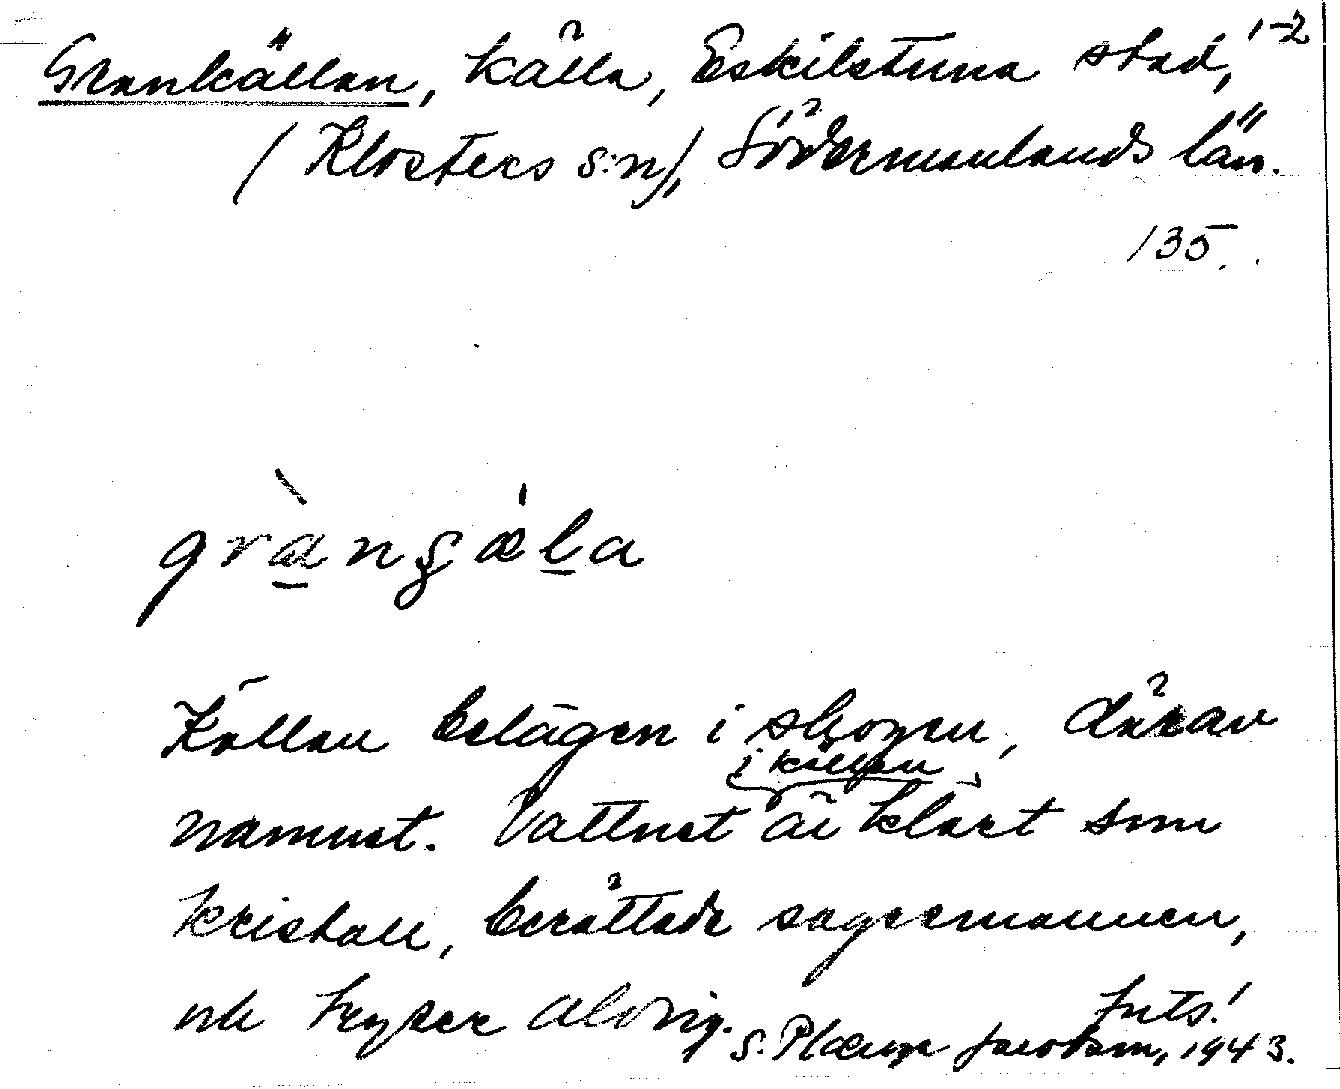 Grankällan, källa, Eskilstuna stad, 1-2
(Klosters s:n), Södermanlands län.
135.
gràngæla
Källan belägen i skogen, därav
i källan
namnet. Vattnet är klart som
kristall, berättade sagesmannen,
och fryser aldrig. Juts!
S. Jacobson, 1943.